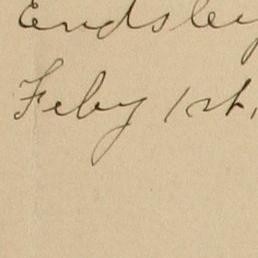 Endsley
Feby 1st,